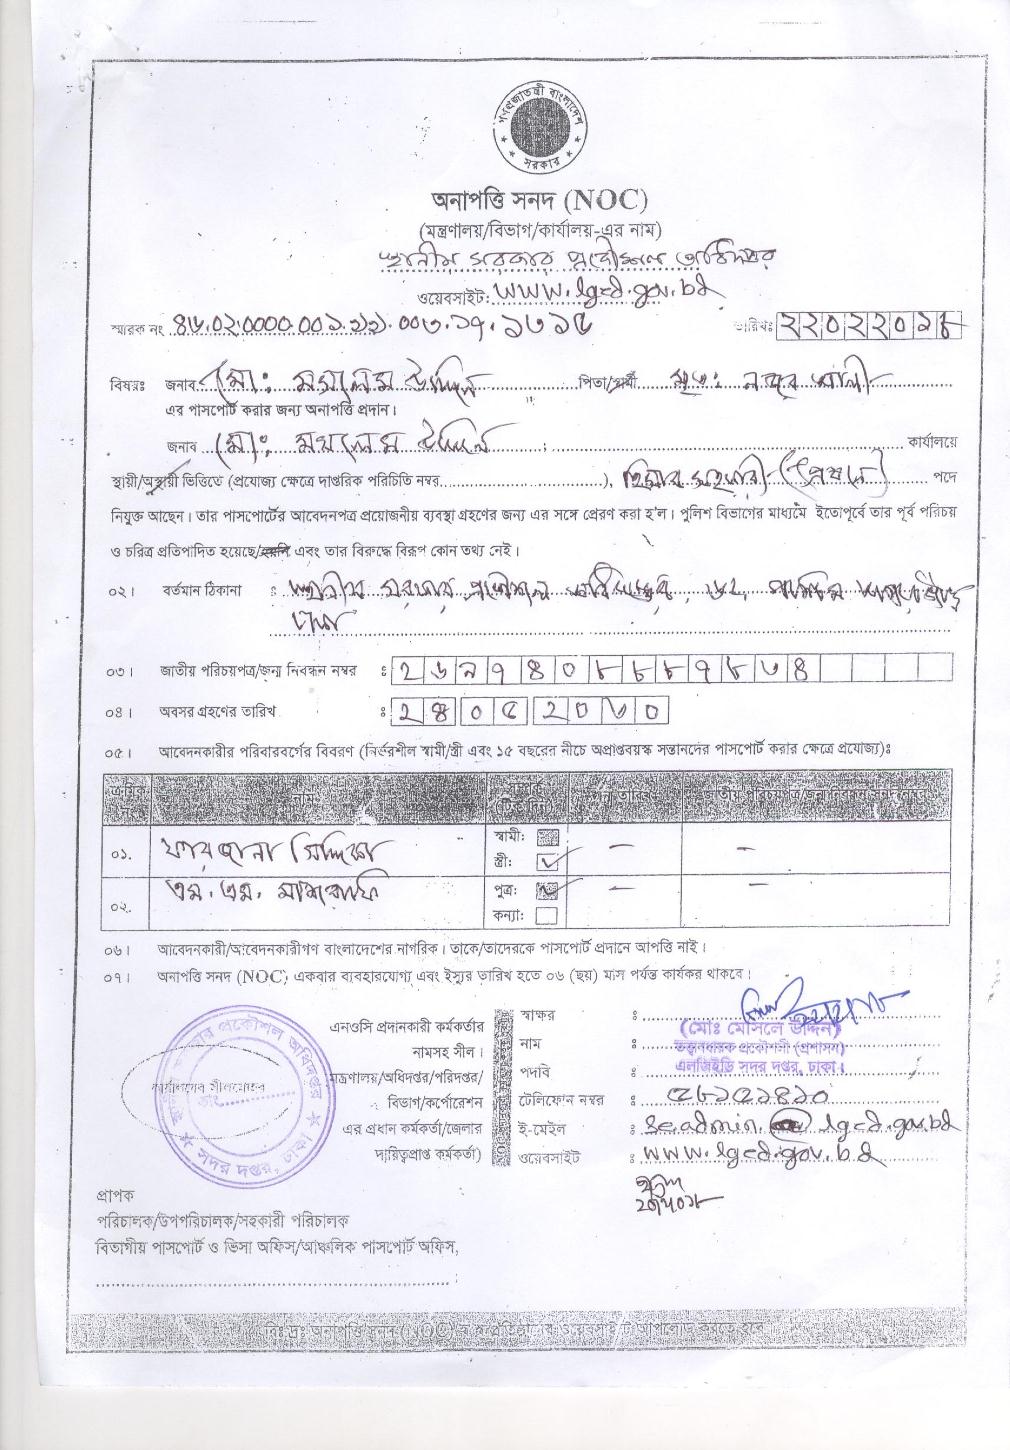 গণপ্রজাতন্ত্রী বাংলাদেশ
সরকার
অনাপত্তি সনদ (NOC)
(মন্ত্রণালয়/বিভাগ/কার্যালয়-এর নাম)
স্থানীয় সরকার প্রকৌশল অধিদপ্তর
ওয়েবসাইট: www.lged.gov.bd
স্মারক নং ৪৬.০২.০০০০.০০১. তারিখঃ ২২০২২০১৮
বিষয়ঃ জনাব মোঃ উদ্দিন পিতা/স্বামী মৃতঃ আলী
এর পাসপোর্ট করার জন্য অনাপত্তি প্রদান।
জনাব মোঃ উদ্দিন কার্যালয়ে
স্থায়ী/অস্থায়ী ভিত্তিতে (প্রযোজ্য ক্ষেত্রে দাপ্তরিক পরিচিতি নম্বর..............................), হিসাব সহকারী (প্রেষণে) পদে
নিযুক্ত আছেন। তার পাসপোর্টের আবেদনপত্র প্রয়োজনীয় ব্যবস্থা গ্রহণের জন্য এর সঙ্গে প্রেরণ করা হ'ল। পুলিশ বিভাগের মাধ্যমে ইতোপূর্বে তার পূর্ব পরিচয়
ও চরিত্র প্রতিপাদিত হয়েছে/হয়নি এবং তার বিরুদ্ধে বিরূপ কোন তথ্য নেই।
০২। বর্তমান ঠিকানা : স্থানীয় সরকার প্রকৌশল অধিদপ্তর, ৬২, পশ্চিম আগারগাঁও
ঢাকা
০৩। জাতীয় পরিচয়পত্র/জন্ম নিবন্ধন নম্বর : ২৬৯৭৪০৮৮৮৭৮৬৪
০৪। অবসর গ্রহণের তারিখ : ২৪০৫২০৬০
০৫। আবেদনকারীর পরিবারবর্গের বিবরণ (নির্ভরশীল স্বামী/স্ত্রী এবং ১৫ বছরের নীচে অপ্রাপ্তবয়স্ক সন্তানদের পাসপোর্ট করার ক্ষেত্রে প্রযোজ্য)ঃ
ক্রমিক নং নাম সম্পর্ক (টিক দিন) জন্ম তারিখ জাতীয় পরিচয়পত্র/জন্ম নিবন্ধন সনদ নম্বর
০১. ফারজানা সিদ্দিকা স্বামী: – –
স্ত্রী: ✓
০২. এম. এম. মাশরাফি পুত্র: ✓ – –
কন্যা:
০৬। আবেদনকারী/আবেদনকারীগণ বাংলাদেশের নাগরিক। তাকে/তাদেরকে পাসপোর্ট প্রদানে আপত্তি নাই।
০৭। অনাপত্তি সনদ (NOC) একবার ব্যবহারযোগ্য এবং ইস্যুর তারিখ হতে ০৬ (ছয়) মাস পর্যন্ত কার্যকর থাকবে।
এনওসি প্রদানকারী কর্মকর্তার
নামসহ সীল।
মন্ত্রণালয়/অধিদপ্তর/পরিদপ্তর/
বিভাগ/কর্পোরেশন
এর প্রধান কর্মকর্তা/জেলার
দায়িত্বপ্রাপ্ত কর্মকর্তা)
স্বাক্ষর :
নাম : (মোঃ মোসলে উদ্দিন)
তত্ত্বাবধায়ক প্রকৌশলী (প্রশাসন)
পদবি : এলজিইডি সদর দপ্তর, ঢাকা।
টেলিফোন নম্বর :
ই-মেইল : se.admin@lged.gov.bd
ওয়েবসাইট : www.lged.gov.bd
কার্যালয়ের সীলমোহর
তাং
সরকার প্রকৌশল অধিদপ্তর
সদর দপ্তর, ঢাকা
প্রাপক
পরিচালক/উপপরিচালক/সহকারী পরিচালক
বিভাগীয় পাসপোর্ট ও ভিসা অফিস/আঞ্চলিক পাসপোর্ট অফিস,
বিঃ দ্রঃ অনাপত্তি সনদ (NOC) ওয়েবসাইটে আপলোড করতে হবে